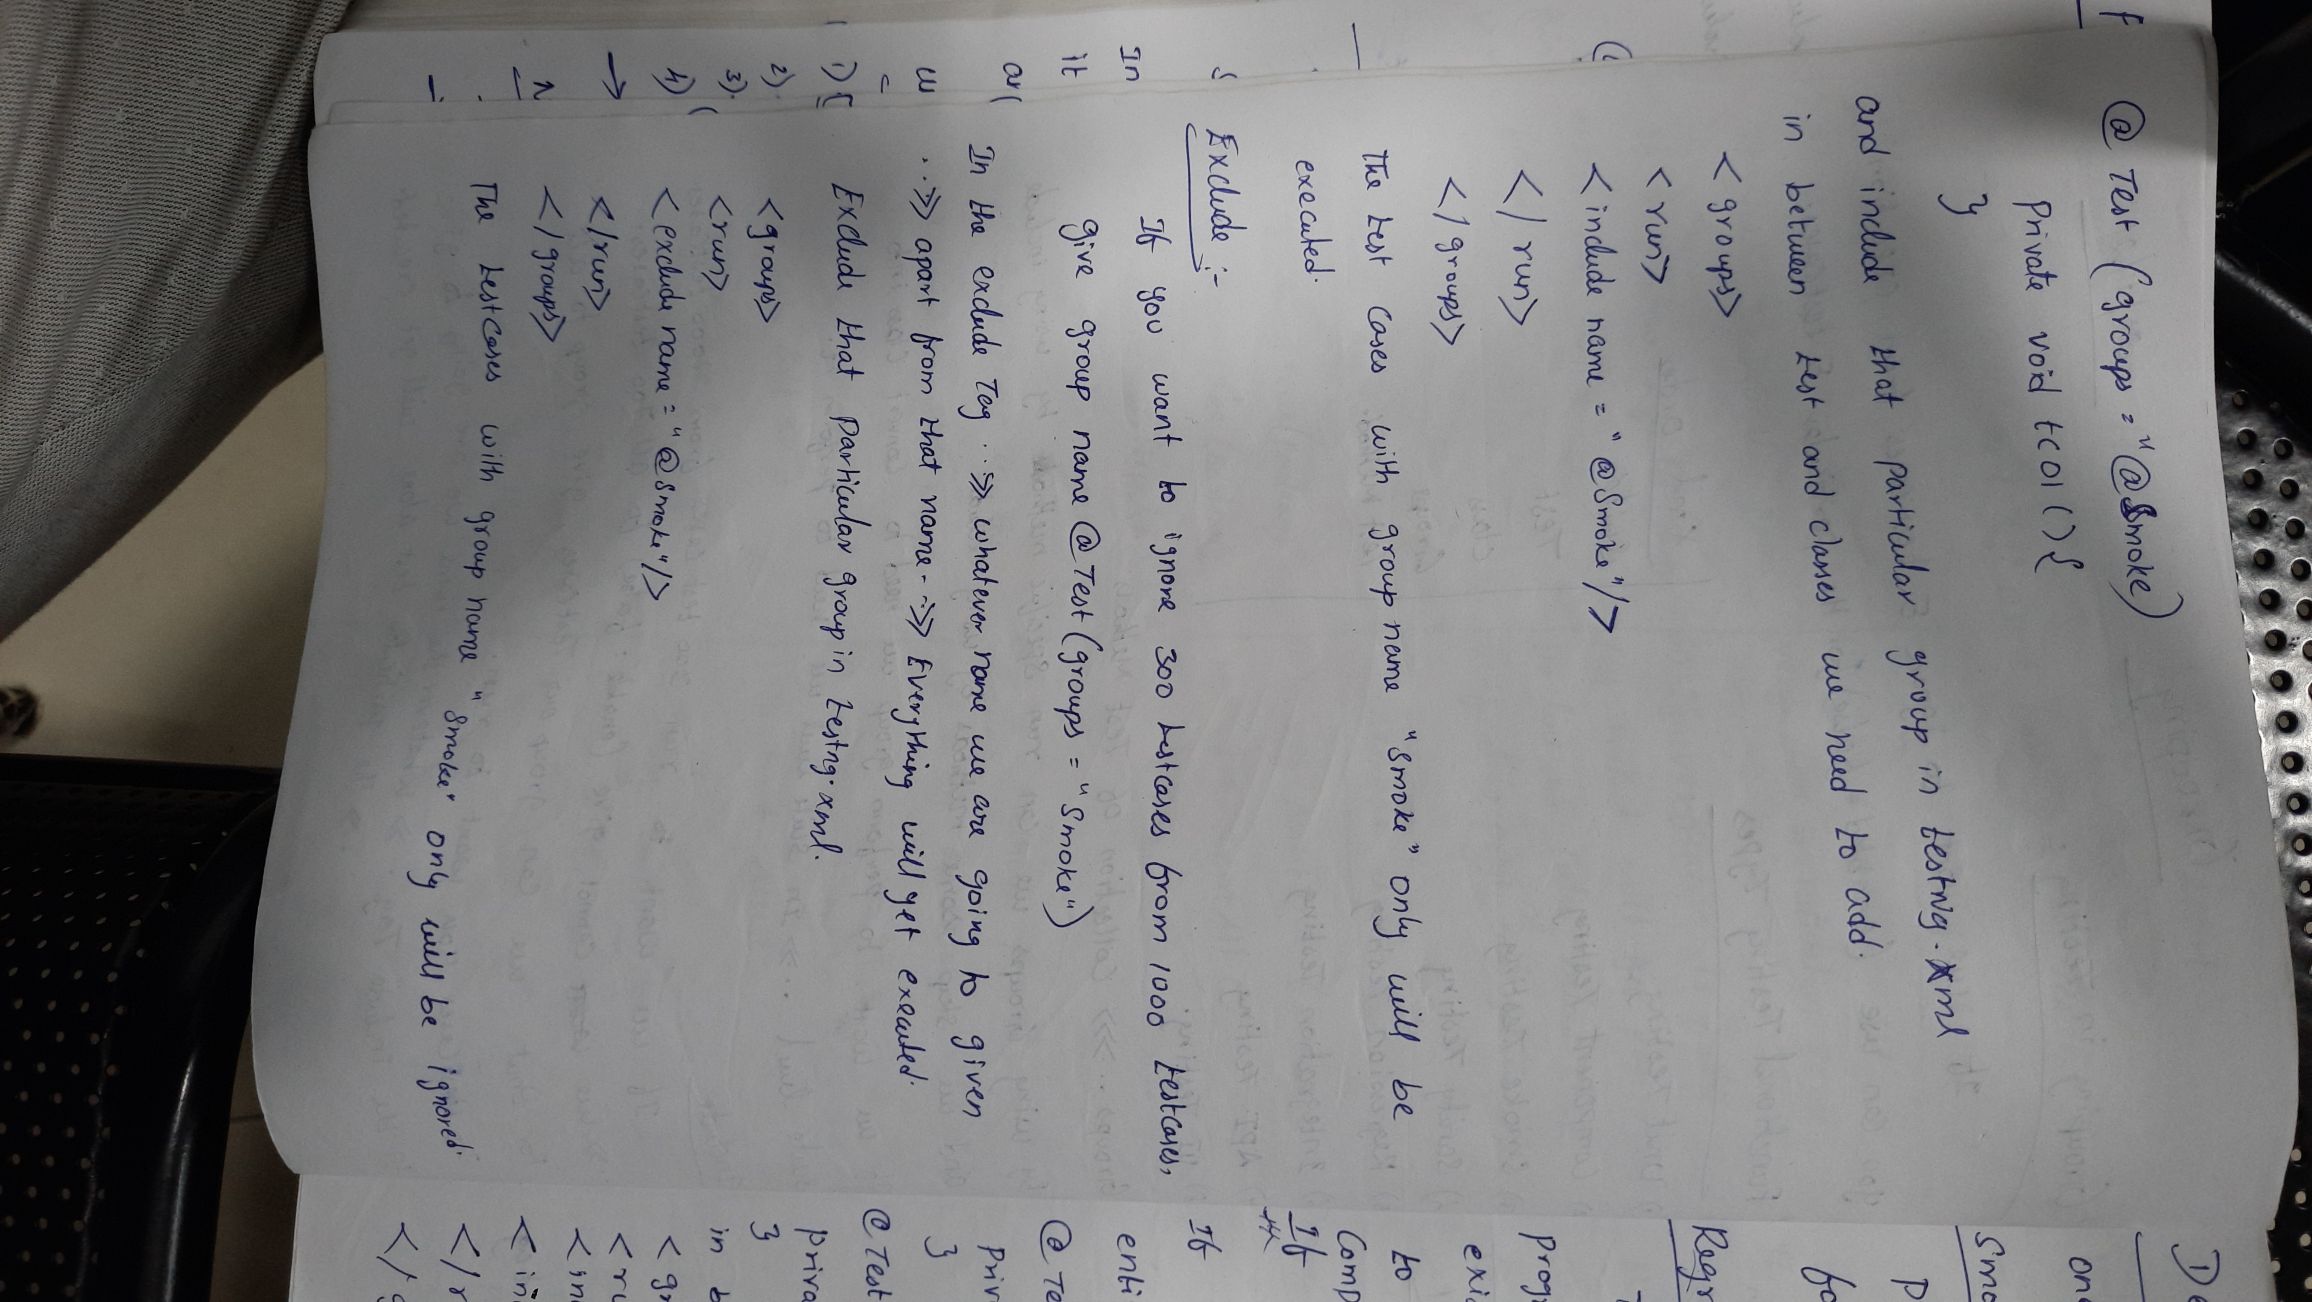 @ Test (groups = "@Smoke)
Private void tC01 () {
}
and include that particular group in testng.xml
in between test and classes we need to add.
< groups>
< run>
< include name = "@Smoke"/>
</ run>
</ groups>
The test cases with group name "smoke" only will be
executed.
Exclude :-
If you want to ignore 300 testcases from 1000 testcases,
give group name @Test (groups = "Smoke")
In the exclude Tag ..>> whatever name we are going to given
..>> apart from that name..>> Everything will get executed.
Exclude that particular group in testng.xml.
<groups>
<run>
<exclude name = "@Smoke"/>
</run>
</groups>
The testcases with group name "Smoke" only will be ignored.
In
it
1)
2).
3).
4)
→
one
Regr
Prog
to
Comp
If
If
enti
@ Te
Priv
}
@Test
priva
}
in b
< gr
< ru
< in
< in
</ r
</ g